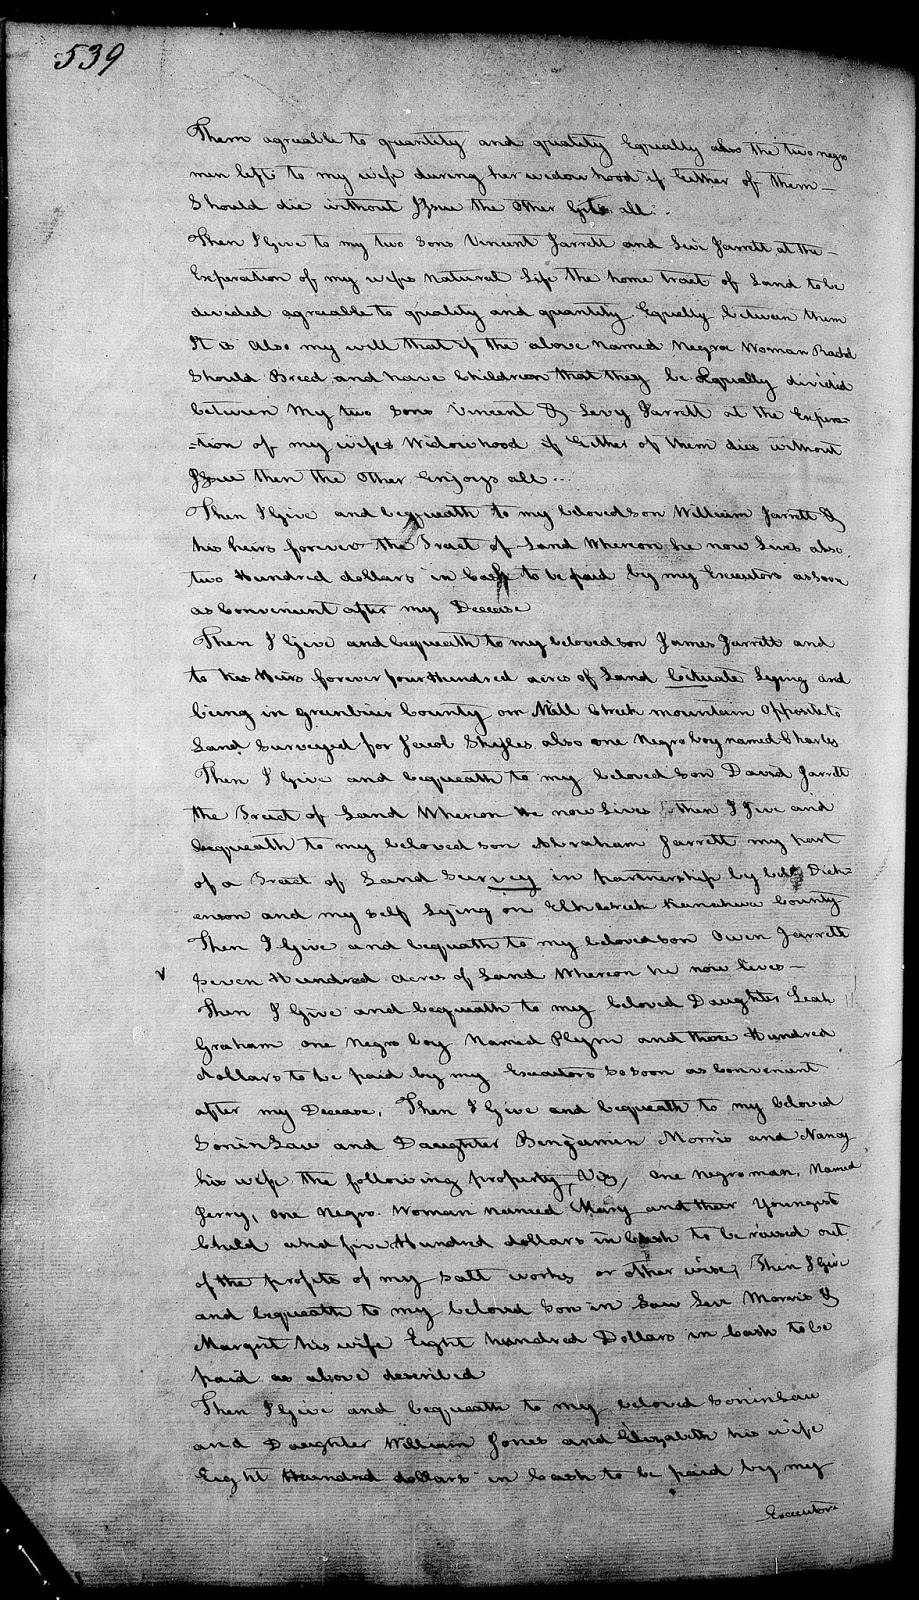 539
Them agreable to quantity and quality Equally also the two negro
men left to my wife during her widowhood if Either of them —
Should die without Issue the Other Gits all..
Then I Give to my two Sons Vincent Jarrett and Levi Jarrett at the —
Experation of my wifes natural Life the home tract of Land to be
divided agreable to quality and quantity Equally between them
It is Also my will that if the above named Negroe Woman Rachel
Should Breed and have Children that they be Equally divided
between My two Sons Vincent & Levy Jarrett at the Expera=
=tion of my wifes Widowhood if Either of them dies without
Issue then the Other Enjoys all...
Then I Give and bequeath to my beloved son William Jarrett &
his heirs forever the Tract of Land Whereon he now Lives also
two Hundred dollars in Cash to be paid by my Executors as soon
as Convenient after my Decease
Then I Give and bequeath to my beloved son James Jarrett and
to his Heirs forever four Hundred acres of Land Cituate Lying and
being in Greenbrier County on Mill Creek mountain Opposite to
Land Surveyed for Jacob Skyles also one Negro boy named Charles
Then I Give and bequeath to my beloved Son David Jarrett
the Tract of Land Whereon He now Lives Then I Give and
bequeath to my beloved son Abraham Jarrett my part
of a Tract of Land Survey in partnership by Dick=
enson and my self Lying on Elk Creek Kanahwa County
Then I Give and bequath to my beloved son Owen Jarrett
Seven Hundred acres of Land Whereon he now lives —
Then I Give and bequeath to my beloved Daughter Leah
Graham one Negro boy Named Plym and three Hundred
dollars to be paid by my Executors so soon as Convenient
after my Decease, Then I Give and bequeath to my beloved
Son in Law and Daughter Benjamin Morris and Nancy
his wife the following property, Viz, one negro man, Named
Jerry, one Negro Woman named Mary and their Youngest
Child and five Hundred dollars in Cash to be raised out
of the profits of my salt works or other wise, Then I Give
and bequeath to my beloved Son in Law Levi Morris &
Margret his wife Eight hundred Dollars in Cash to be
paid as above described
Then I Give and bequeath to my beloved Son in Law
and Daughter William Jones and Elizabeth his wife
Eight Hundred dollars in Cash to be paid by my
Executors